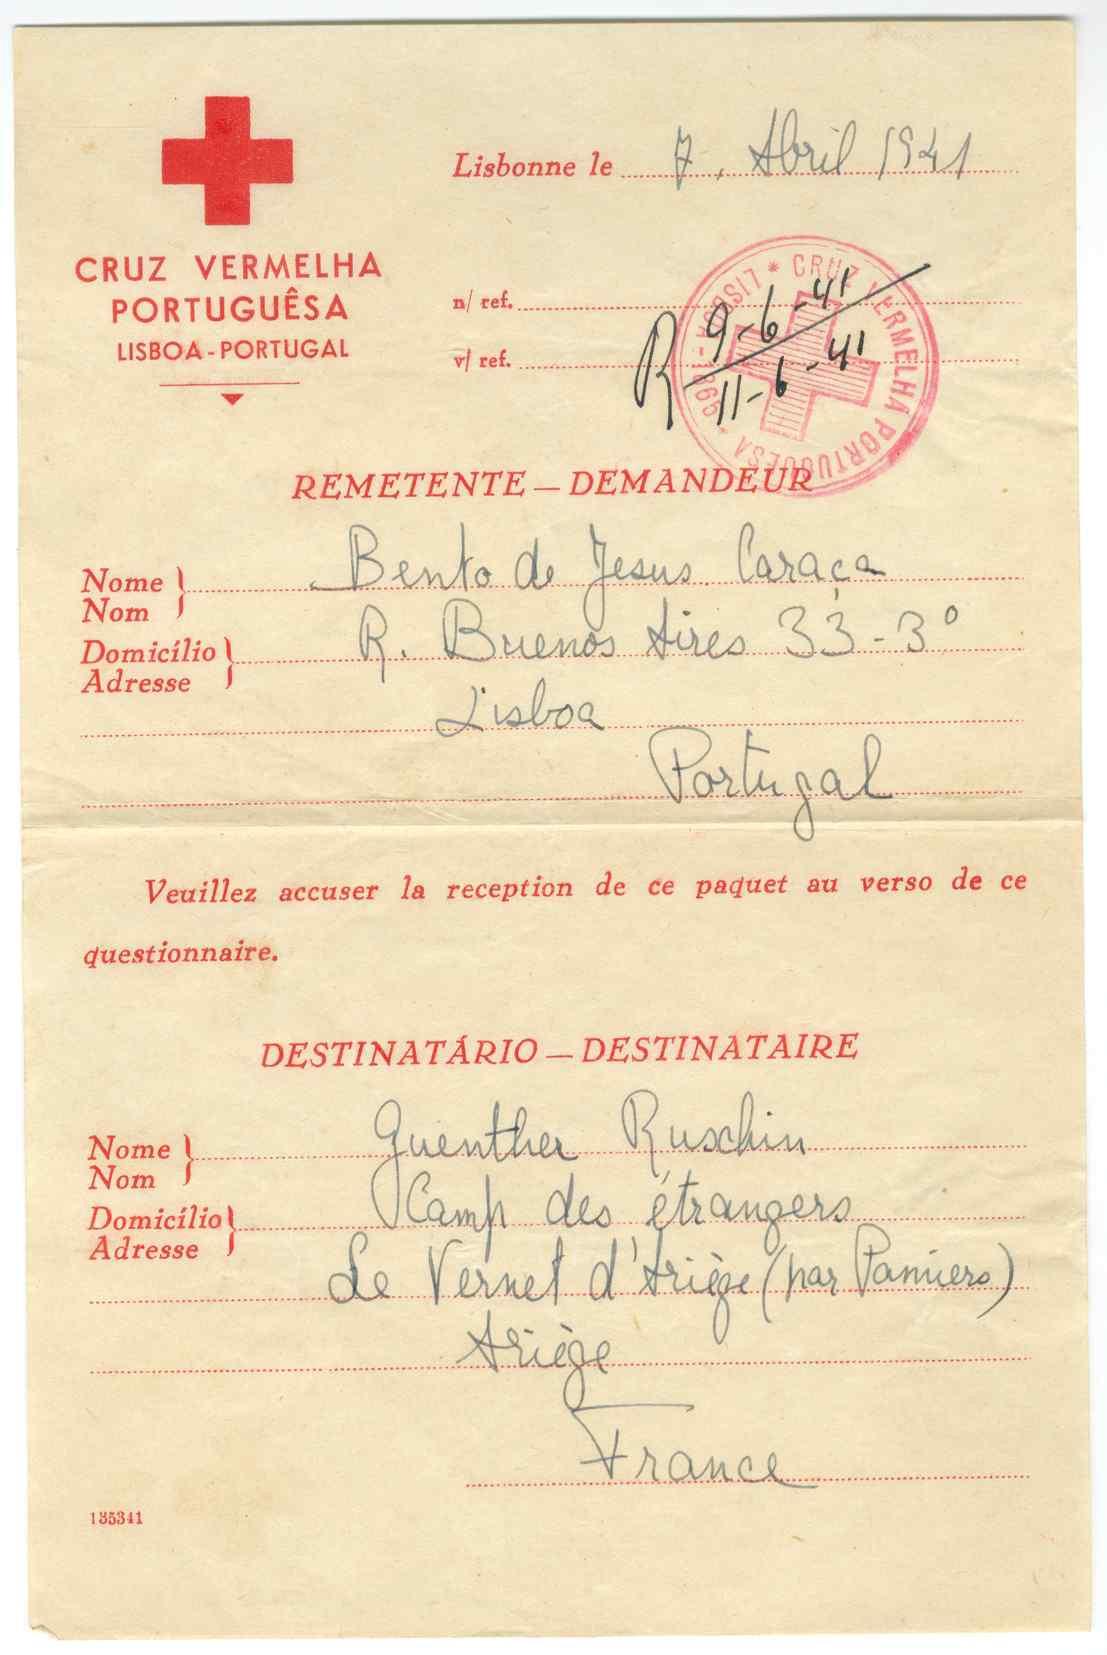 Lisbonne le 7. Abril 1941
CRUZ VERMELHA
PORTUGUÊSA
LISBOA-PORTUGAL
n/ ref.
v/ ref.
R 9-6-41
11-6-41
LISBOA * CRUZ VERMELHA PORTUGUESA * 1865
REMETENTE — DEMANDEUR
Nome } Bento de Jesus Caraça
Nom
Domicílio } R. Buenos Aires 33-3º
Adresse
Lisboa
Portugal
Veuillez accuser la reception de ce paquet au verso de ce
questionnaire.
DESTINATÁRIO — DESTINATAIRE
Nome } Guenther Ruschin
Nom
Domicílio } Camp des étrangers
Adresse
Le Vernet d'Ariège (par Pamiers)
Ariège
France
135341